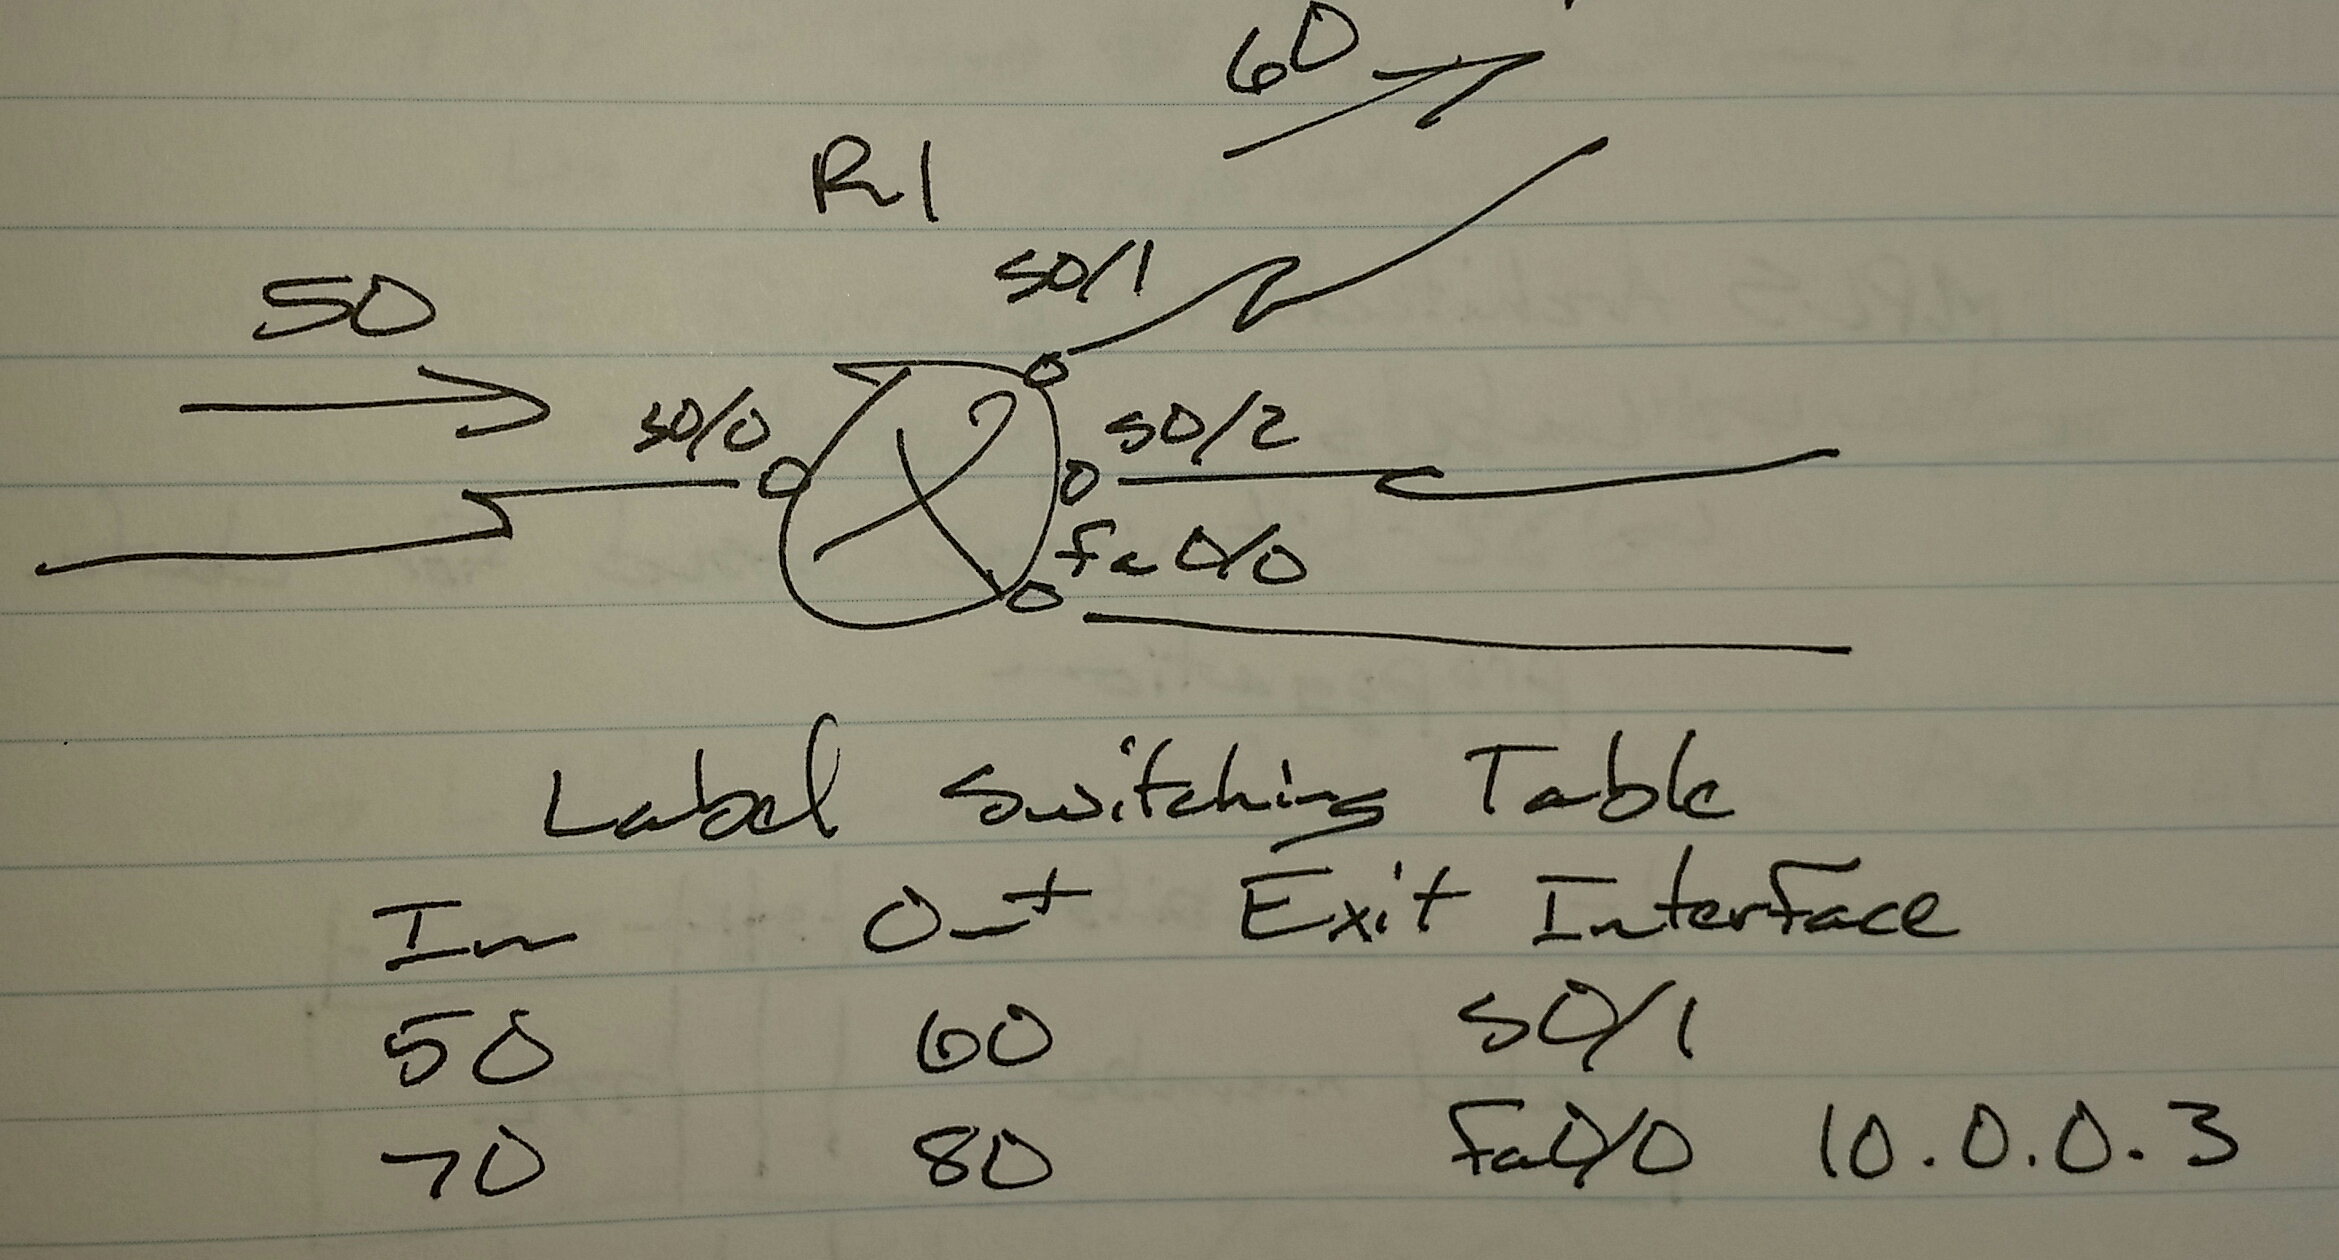 60
R1
50
S0/1
S0/0
S0/2
fa0/0
Label Switching Table
In Out Exit Interface
50 60 S0/1
70 80 fa0/0 10.0.0.3